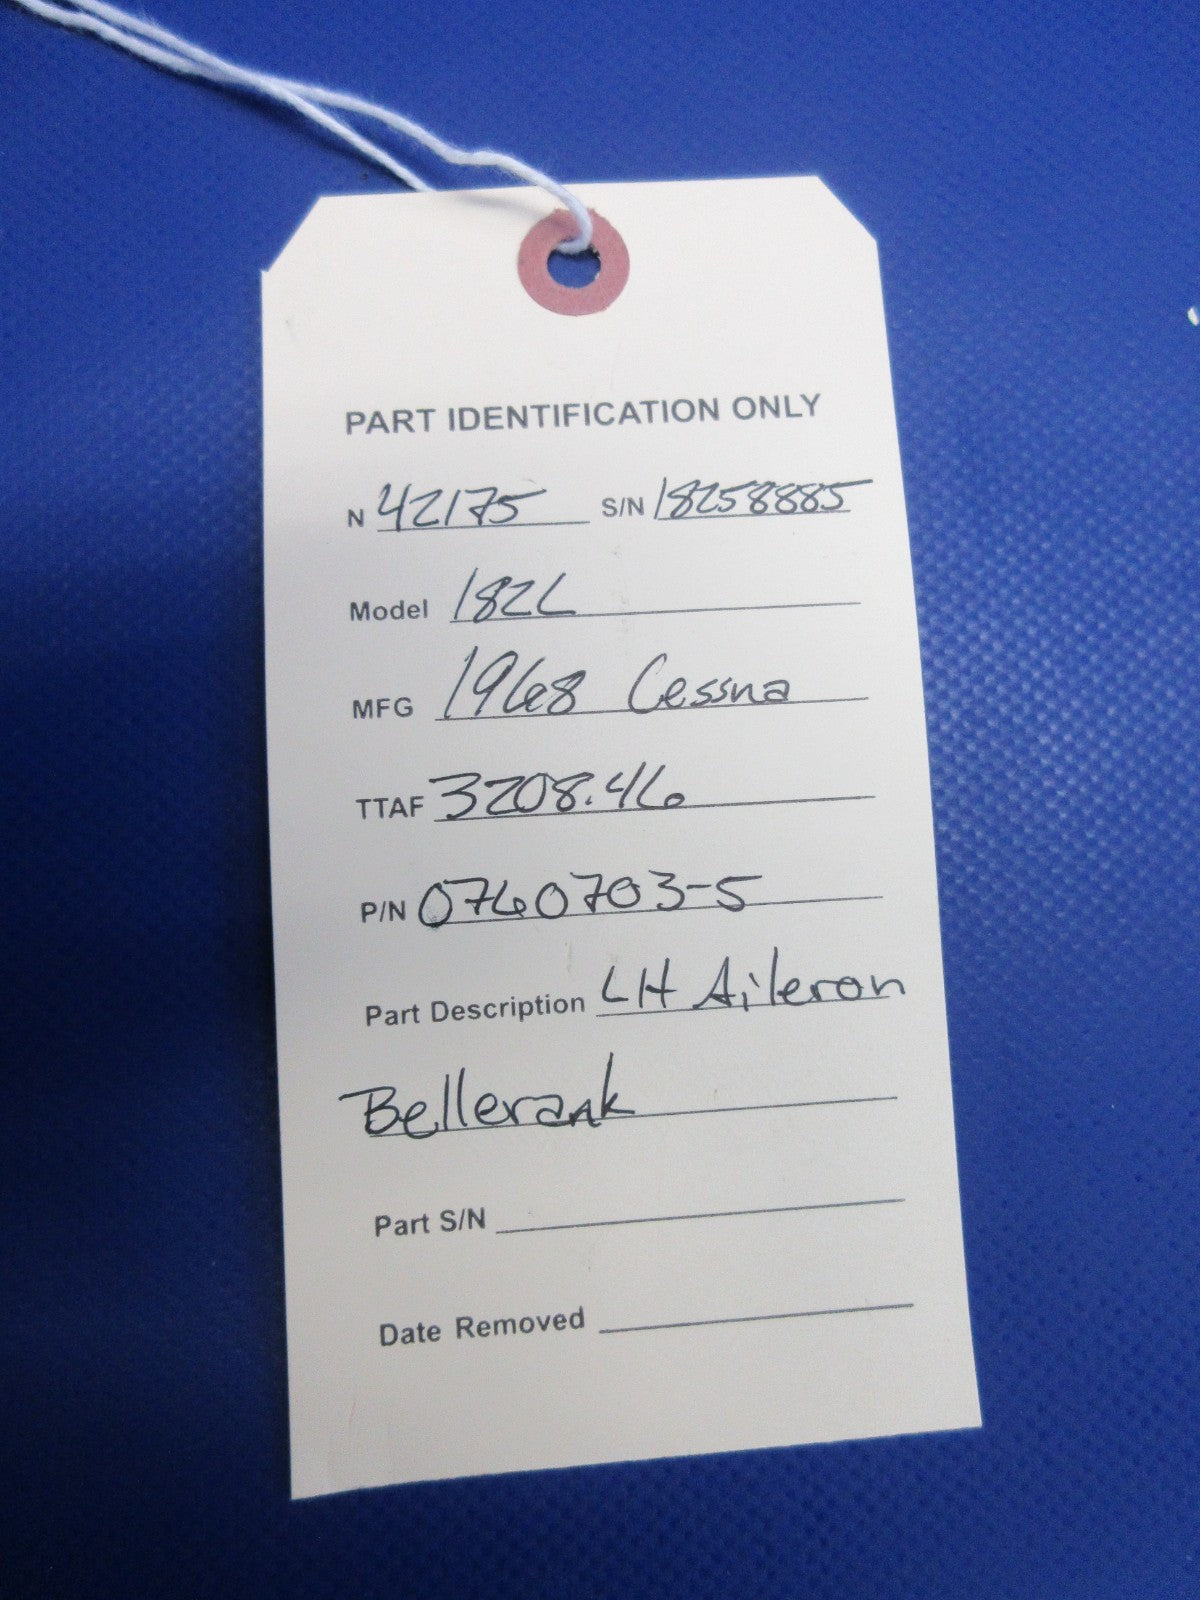 PART IDENTIFICATION ONLY
N 42175 S/N 18258885
Model 182L
MFG 1968 Cessna
TTAF 3208.46
P/N 0760703-5
Part Description LH Aileron
Bellcrank
Part S/N
Date Removed